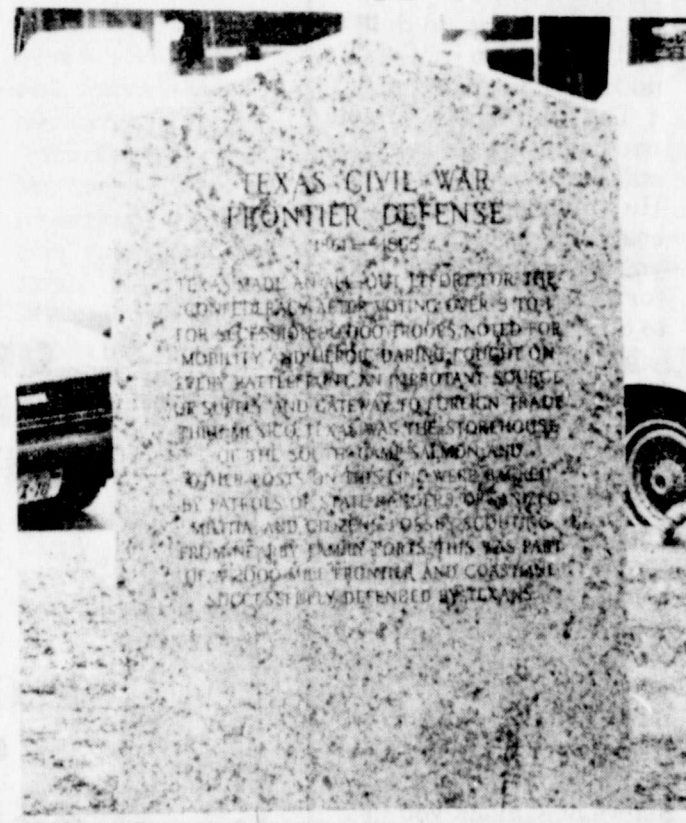 TEXAS CIVIL WAR
FRONTIER DEFENSE
1861-1865
TEXAS MADE AN ALL-OUT EFFORT FOR THE
CONFEDERACY AFTER VOTING OVER 3 TO 1
FOR SECESSION. 90,000 TROOPS, NOTED FOR
MOBILITY AND HEROIC DARING, FOUGHT ON
EVERY BATTLEFRONT. AN IMPORTANT SOURCE
OF SUPPLY AND GATEWAY TO FOREIGN TRADE
THRU MEXICO, TEXAS WAS THE STOREHOUSE
OF THE SOUTH. CAMP SALMON AND
OTHER POSTS ON THIS LINE WERE BACKED
BY PATROLS OF STATE RANGERS, ORGANIZED
MILITIA, AND CITIZENS POSSE SCOUTING
FROM NEARBY FAMILY FORTS. THIS WAS PART
OF A 2000 MILE FRONTIER AND COASTLINE
SUCCESSFULLY DEFENDED BY TEXANS